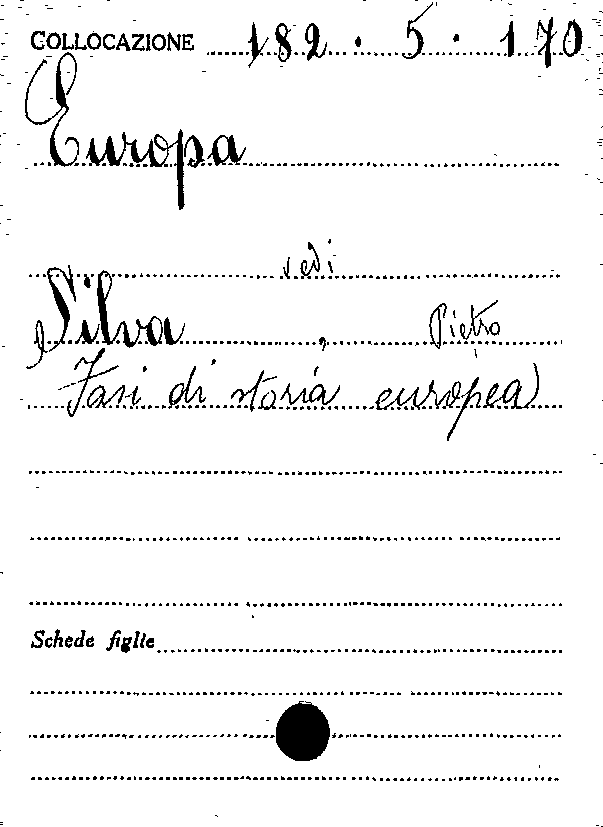 COLLOCAZIONE 182 . 5 . 170
Europa
vedi
Silva , Pietro
Fasi di storia europea
Schede figlie